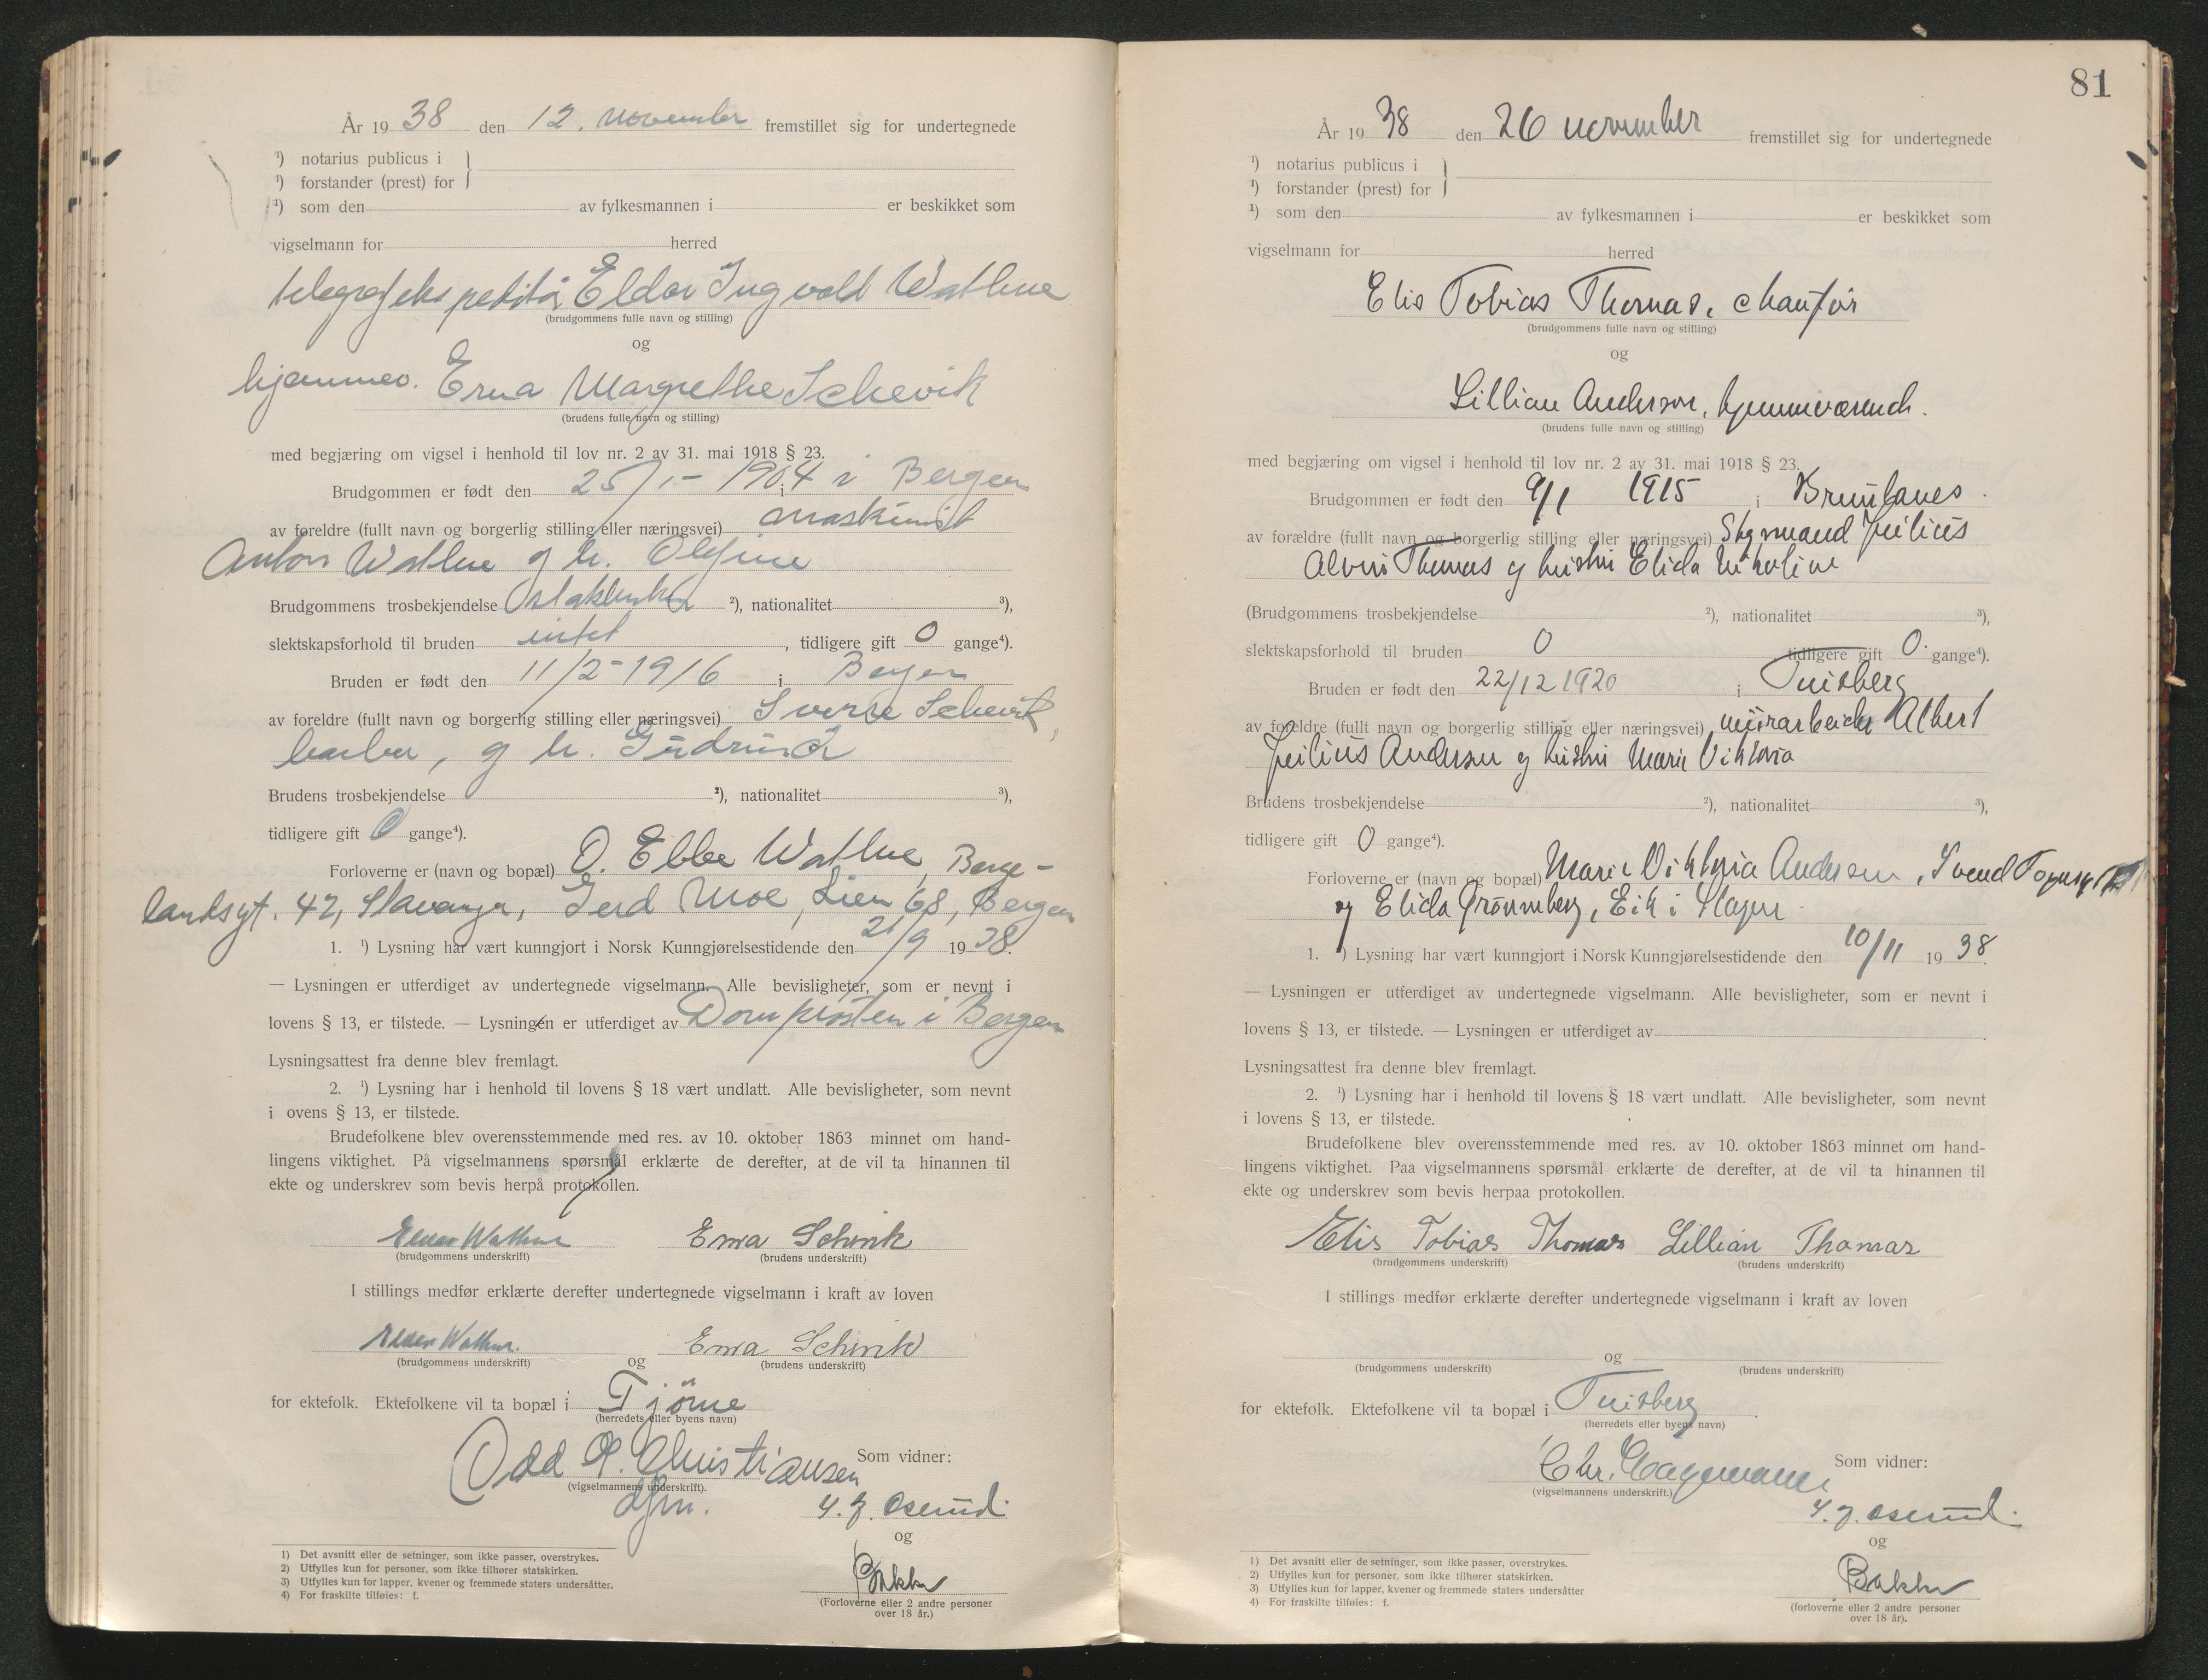 År 19 38 den 12. november fremstillet sig for undertegnede
¹) notarius publicus i
¹) forstander (prest) for
¹) som den av fylkesmannen i er beskikket som
vigselmann for herred
telegrafekspeditør Eldar Ingvald Wathne
(brudgommens fulle navn og stilling)
og
hjemmev. Erna Margrethe Schevik
(brudens fulle navn og stilling)
med begjæring om vigsel i henhold til lov nr. 2 av 31. mai 1918 § 23.
Brudgommen er født den 25/1- 1904 i Bergen
av foreldre (fullt navn og borgerlig stilling eller næringsvei) maskinist
Anton Wathne og h. Olefine
Brudgommens trosbekjendelse statskirken ²), nationalitet ³),
slektskapsforhold til bruden intet , tidligere gift 0 gange⁴).
Bruden er født den 11/2-1916 i Bergen
av foreldre (fullt navn og borgerlig stilling eller næringsvei) Sverre Schevik,
barber, og h. Gudrun
Brudens trosbekjendelse ²), nationalitet ³),
tidligere gift 0 gange⁴).
Forloverne er (navn og bopæl) O. Ebbe Wathne, Berge-
landsgt. 42, Stavanger, Gerd Moe, Lien 68, Bergen
1. ¹) Lysning har vært kunngjort i Norsk Kunngjørelsestidende den 21/9 19 38.
— Lysningen er utferdiget av undertegnede vigselmann. Alle bevisligheter, som er nevnt i
lovens § 13, er tilstede. — Lysningen er utferdiget av Domprosten i Bergen
Lysningsattest fra denne blev fremlagt.
2. ¹) Lysning har i henhold til lovens § 18 vært undlatt. Alle bevisligheter, som nevnt
i ovens § 13, er tilstede.
Brudefolkene blev overensstemmende med res. av 10. oktober 1863 minnet om hand-
lingens viktighet. På vigselmannens spørsmål erklærte de derefter, at de vil ta hinannen til
ekte og underskrev som bevis herpå protokollen.
Eldar Wathne Erna Schevik
(brudgommens underskrift) (brudens underskrift)
I stillings medfør erklærte derefter undertegnede vigselmann i kraft av loven
Eldar Wathne. Erna Schevik
(brudgommens underskrift) og (brudens underskrift)
for ektefolk. Ektefolkene vil ta bopæl i Tjöme
(herredets eller byens navn)
Odd A. Christiansen Som vidner:
(vigselmannens underskrift).
dfm. Y. J. Oserud.
og
Bakke
(Forloverne eller 2 andre personer
over 18 år.)
1) Det avsnitt eller de setninger, som ikke passer, overstrykes.
2) Utfylles kun for personer, som ikke tilhører statskirken.
3) Utfylles kun for lapper, kvener og fremmede staters undersåtter.
4) For fraskilte tilføies: f.
81
År 19 38 den 26 november fremstillet sig for undertegnede
¹) notarius publicus i
¹) forstander (prest) for
¹) som den av fylkesmannen i er beskikket som
vigselmann for herred
Elis Tobias Thomas, chaufør
(brudgommens fulle navn og stilling)
og
Lillian Andersen, hjemmeværende.
(brudens fulle navn og stilling)
med begjæring om vigsel i henhold til lov nr. 2 av 31. mai 1918 § 23.
Brudgommen er født den 9/1 1915 i Brunlanes.
av forældre (fullt navn og borgerlig stilling eller næringsvei) Styrmand Julius
Alvin Thomas og hustru Elida Nikoline
(Brudgommens trosbekjendelse ²), nationalitet ³),
slektskapsforhold til bruden 0 tidligere gift 0. gange⁴).
Bruden er født den 22/12 1920 i Tønsberg
av foreldre (fullt navn og borgerlig stilling eller næringsvei) murarbeider Albert
Julius Andersen og hustru Marie Viktoria
Brudens trosbekjendelse ²), nationalitet ³),
tidligere gift 0 gange⁴).
Forloverne er (navn og bopæl) Marie Viktoria Andersen, Svend
og Elida Grönneberg, Eik i Slagen
1. ¹) Lysning har vært kunngjort i Norsk Kunngjørelsestidende den 10/11 19 38.
— Lysningen er utferdiget av undertegnede vigselmann. Alle bevisligheter, som er nevnt i
lovens § 13, er tilstede. — Lysningen er utferdiget av
Lysningsattest fra denne blev fremlagt.
2. ¹) Lysning har i henhold til lovens § 18 vært undlatt. Alle bevisligheter, som nevnt
i lovens § 13, er tilstede.
Brudefolkene blev overensstemmende med res. av 10. oktober 1863 minnet om hand-
lingens viktighet. Paa vigselmannens spørsmål erklærte de derefter, at de vil ta hinannen til
ekte og underskrev som bevis herpaa protokollen.
Elis Tobias Thomas Lillian Thomas
(brudgommens underskrift) (brudens underskrift)
I stillings medfør erklærte derefter undertegnede vigselmann i kraft av loven
og
(brudgommens underskrift) (brudens underskrift)
for ektefolk. Ektefolkene vil ta bopæl i Tønsberg.
(herredets eller byens navn)
Chr. Som vidner:
(vigselmannens underskrift.)
Y. J. Oserud.
og
Bakke
(forloverne eller 2 andre personer
over 18 år).
1) Det avsnitt eller de setninger, som ikke passer, overstrykes.
2) Utfylles kun for personer, som ikke tilhører statskirken.
3) Utfylles kun for lapper, kvener og fremmede staters undersåtter
4) For fraskilte tilføies: f.